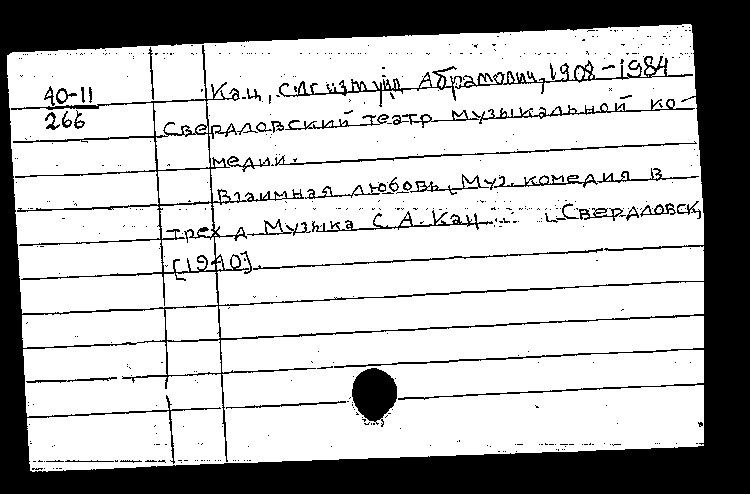 40-11
266
Кац, Сигизмунд Абрамович, 1908-1984
Свердловский театр музыкальной ко-
медии.
Взаимная любовь. Муз. комедия в
трех д. Музыка С. А. Кац... Свердловск,
[1940].